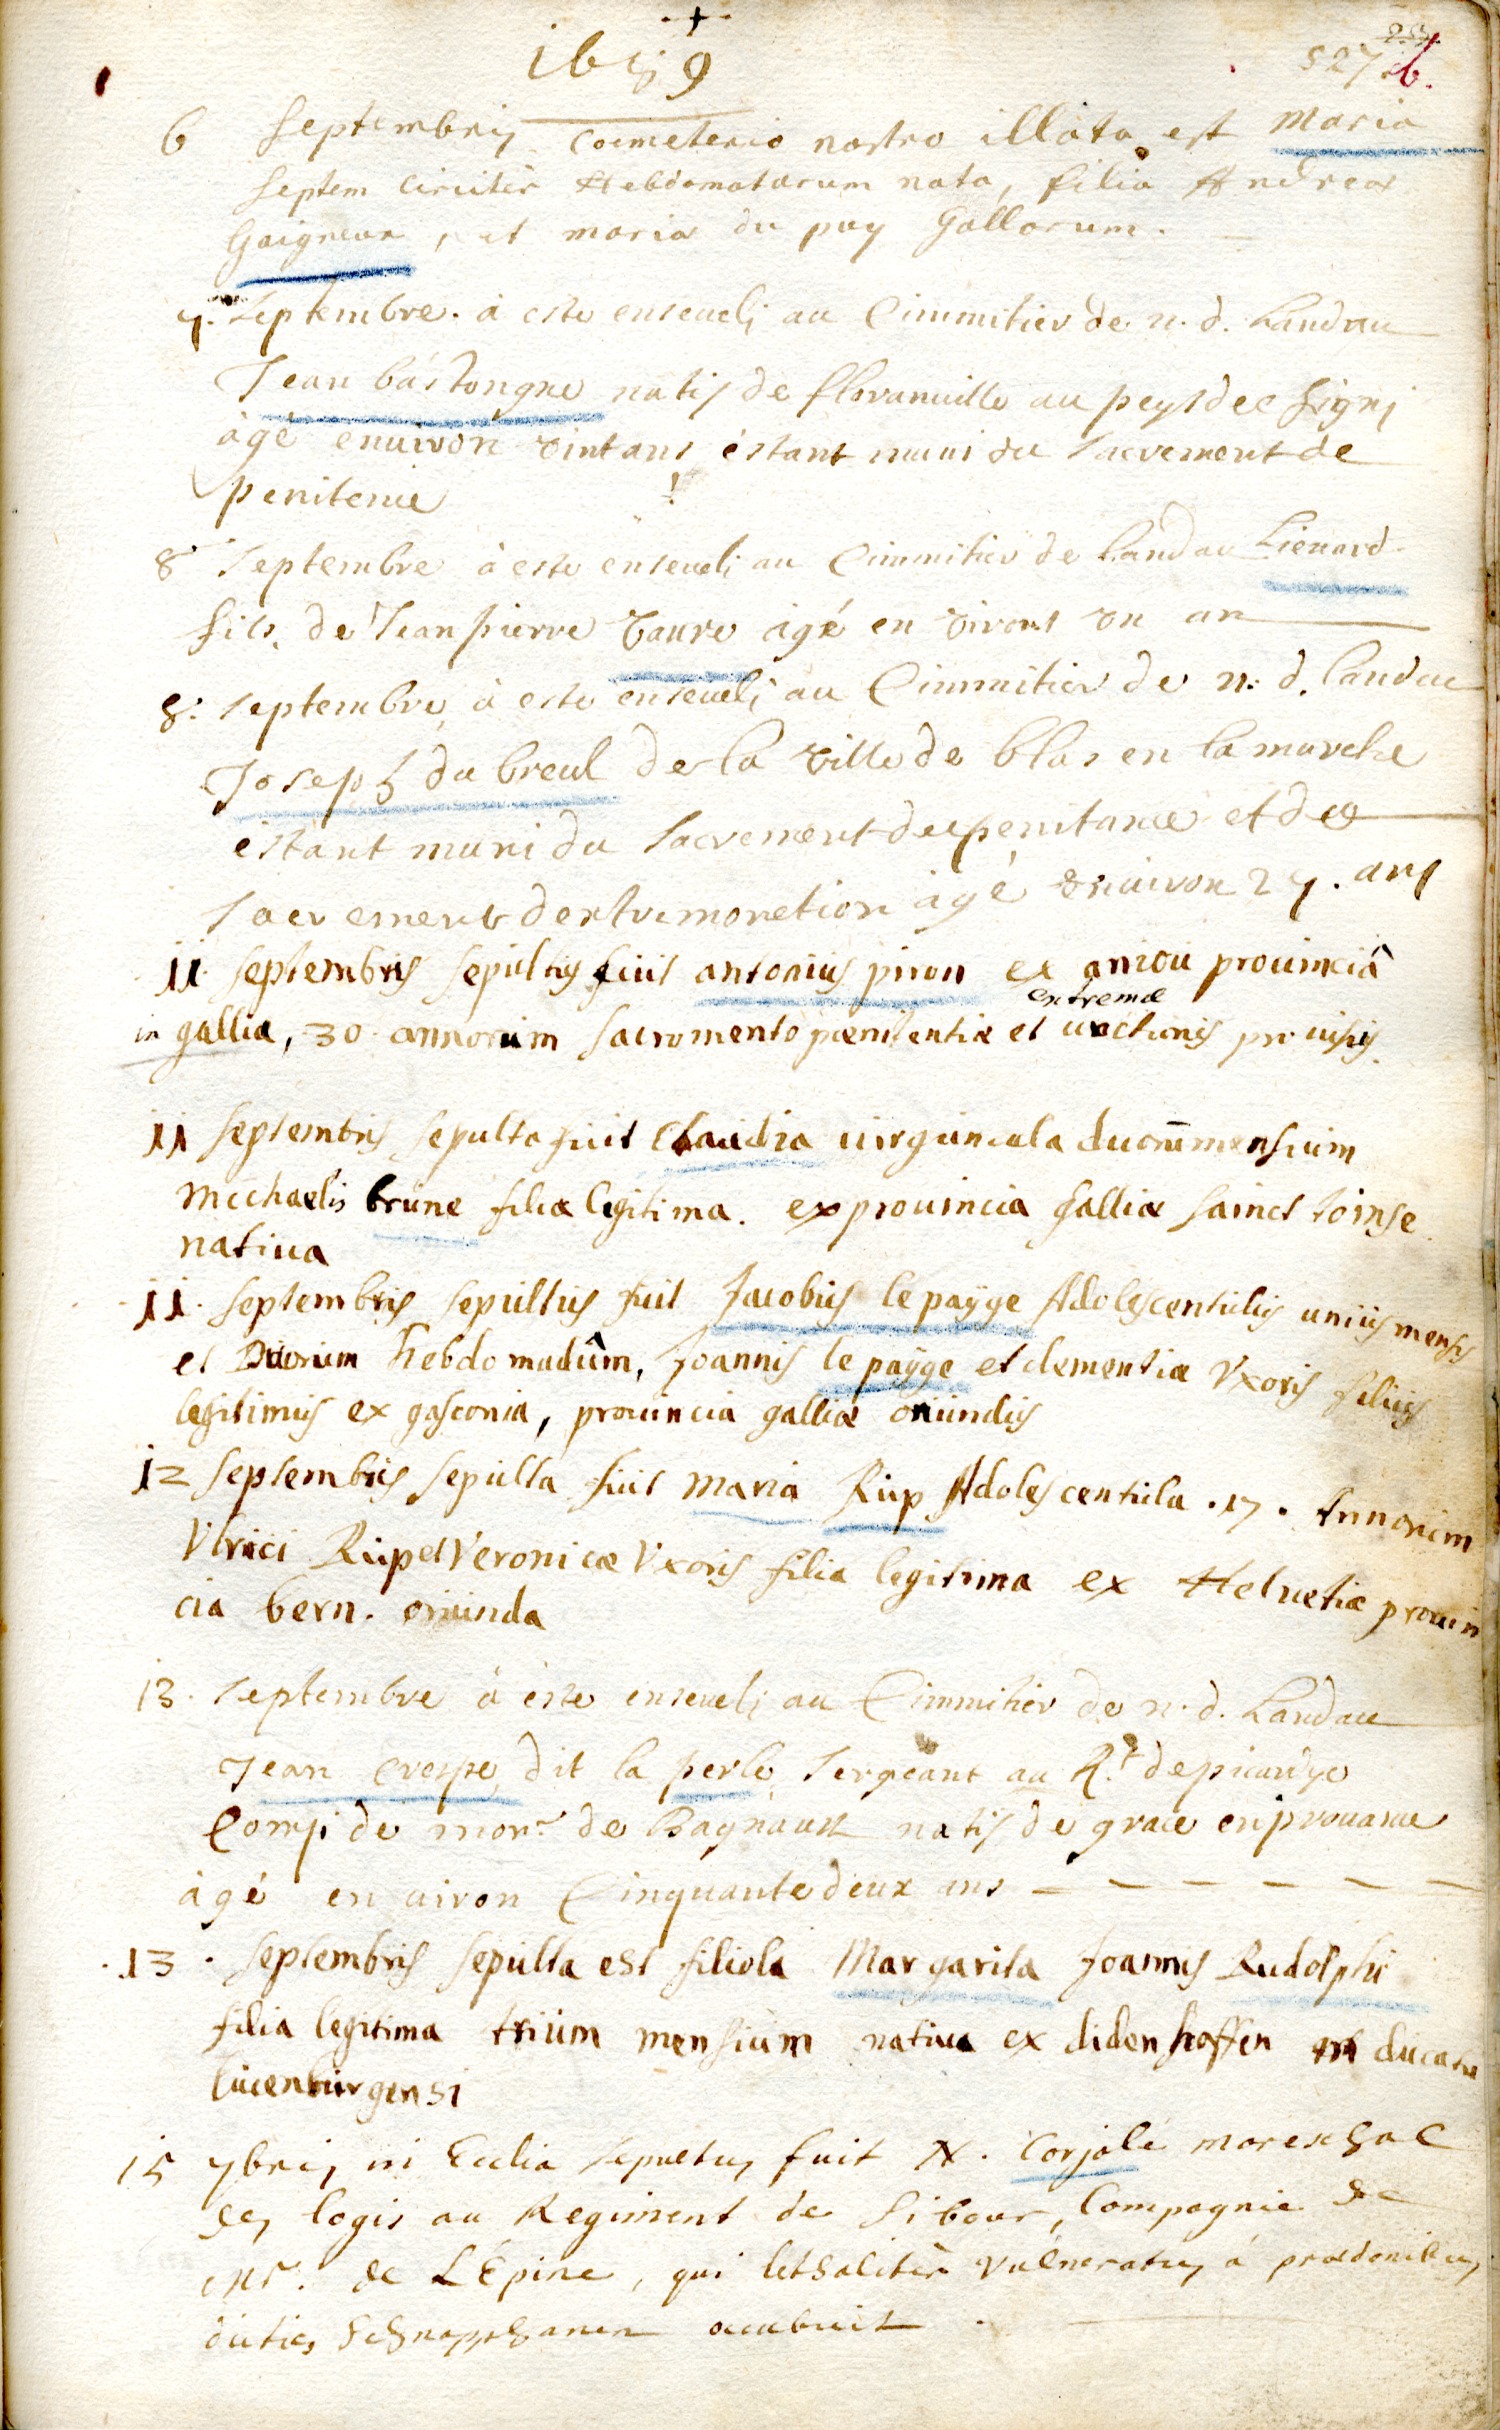 +
1689
527 b.
6 Septembris Coemeterio nostro illata est Maria
septem circiter Hebdomatarum nata, filia Andreae
Gaigneux, et maria du puy Gallorum.
7. Septembre. à este enseueli au Cimmitier de n. d. Landau
Jean bastongne natif de floranuille au peys de
àgé enuiron vint ans éstant muni du sacrement de
penitence
8 Septembre à este enseueli au Cimmitier de Landau Lienard
fils de Jean pierre Vaure àgé en viront vn an
8. septembre à este enseueli au Cimmitier de n. d. landau
Joseph du breul de la ville de blas en la marche
éstant muni du sacrement de penitance et de
sacrement dextremonction àgé enuiron 27. ans
11 septembris sepultus fuit antonius piron ex aniou prouinciâ
extremae
in gallia, 30 annorum sacramento paenitentiae et unctionis prouisus.
11 septembris sepulta fuit Claudia uirguncula duorum mensium
Michaelis brune filia legitima. ex prouincia galliae sainct toinse
natiua
11. septembris sepultus fuit Jacobus le payge Adolescentulus unius mensis
et Duorum hebdomadum, Joannis le payge et clementiae Vxoris filius
legitimus ex gasconia, prouincia galliae oriundus
12 septembris sepulta fuit Maria Rup Adolescentula .17. Annorum
Vlrici Rup et Veronicae Vxoris filia legitima ex Helvetiae prouin
cia bern. oriunda
13. septembre à éste enseueli au Cimmitier de n. d. Landau
Jean crespe dit la perle sergeant au R.t de picardye
Comp: de mon.r de Bagnaux natif de grace en prouance
àgé en uiron Cinquante deux ans
13. septembris sepulta est filiola Margarita Joannis Rudolphi
filia legitima trium mensium natiua ex didenhoffen in ducatu
lucenburgensi
15 7bris in Ecclia sepultus fuit N. Corjolé mareschal
des logis au Regiment de Sibour, Compagnie de
mr. de L'Épine, qui lethaliter vulneratus á praedonibus
dictis Schnapphanen occubuit.